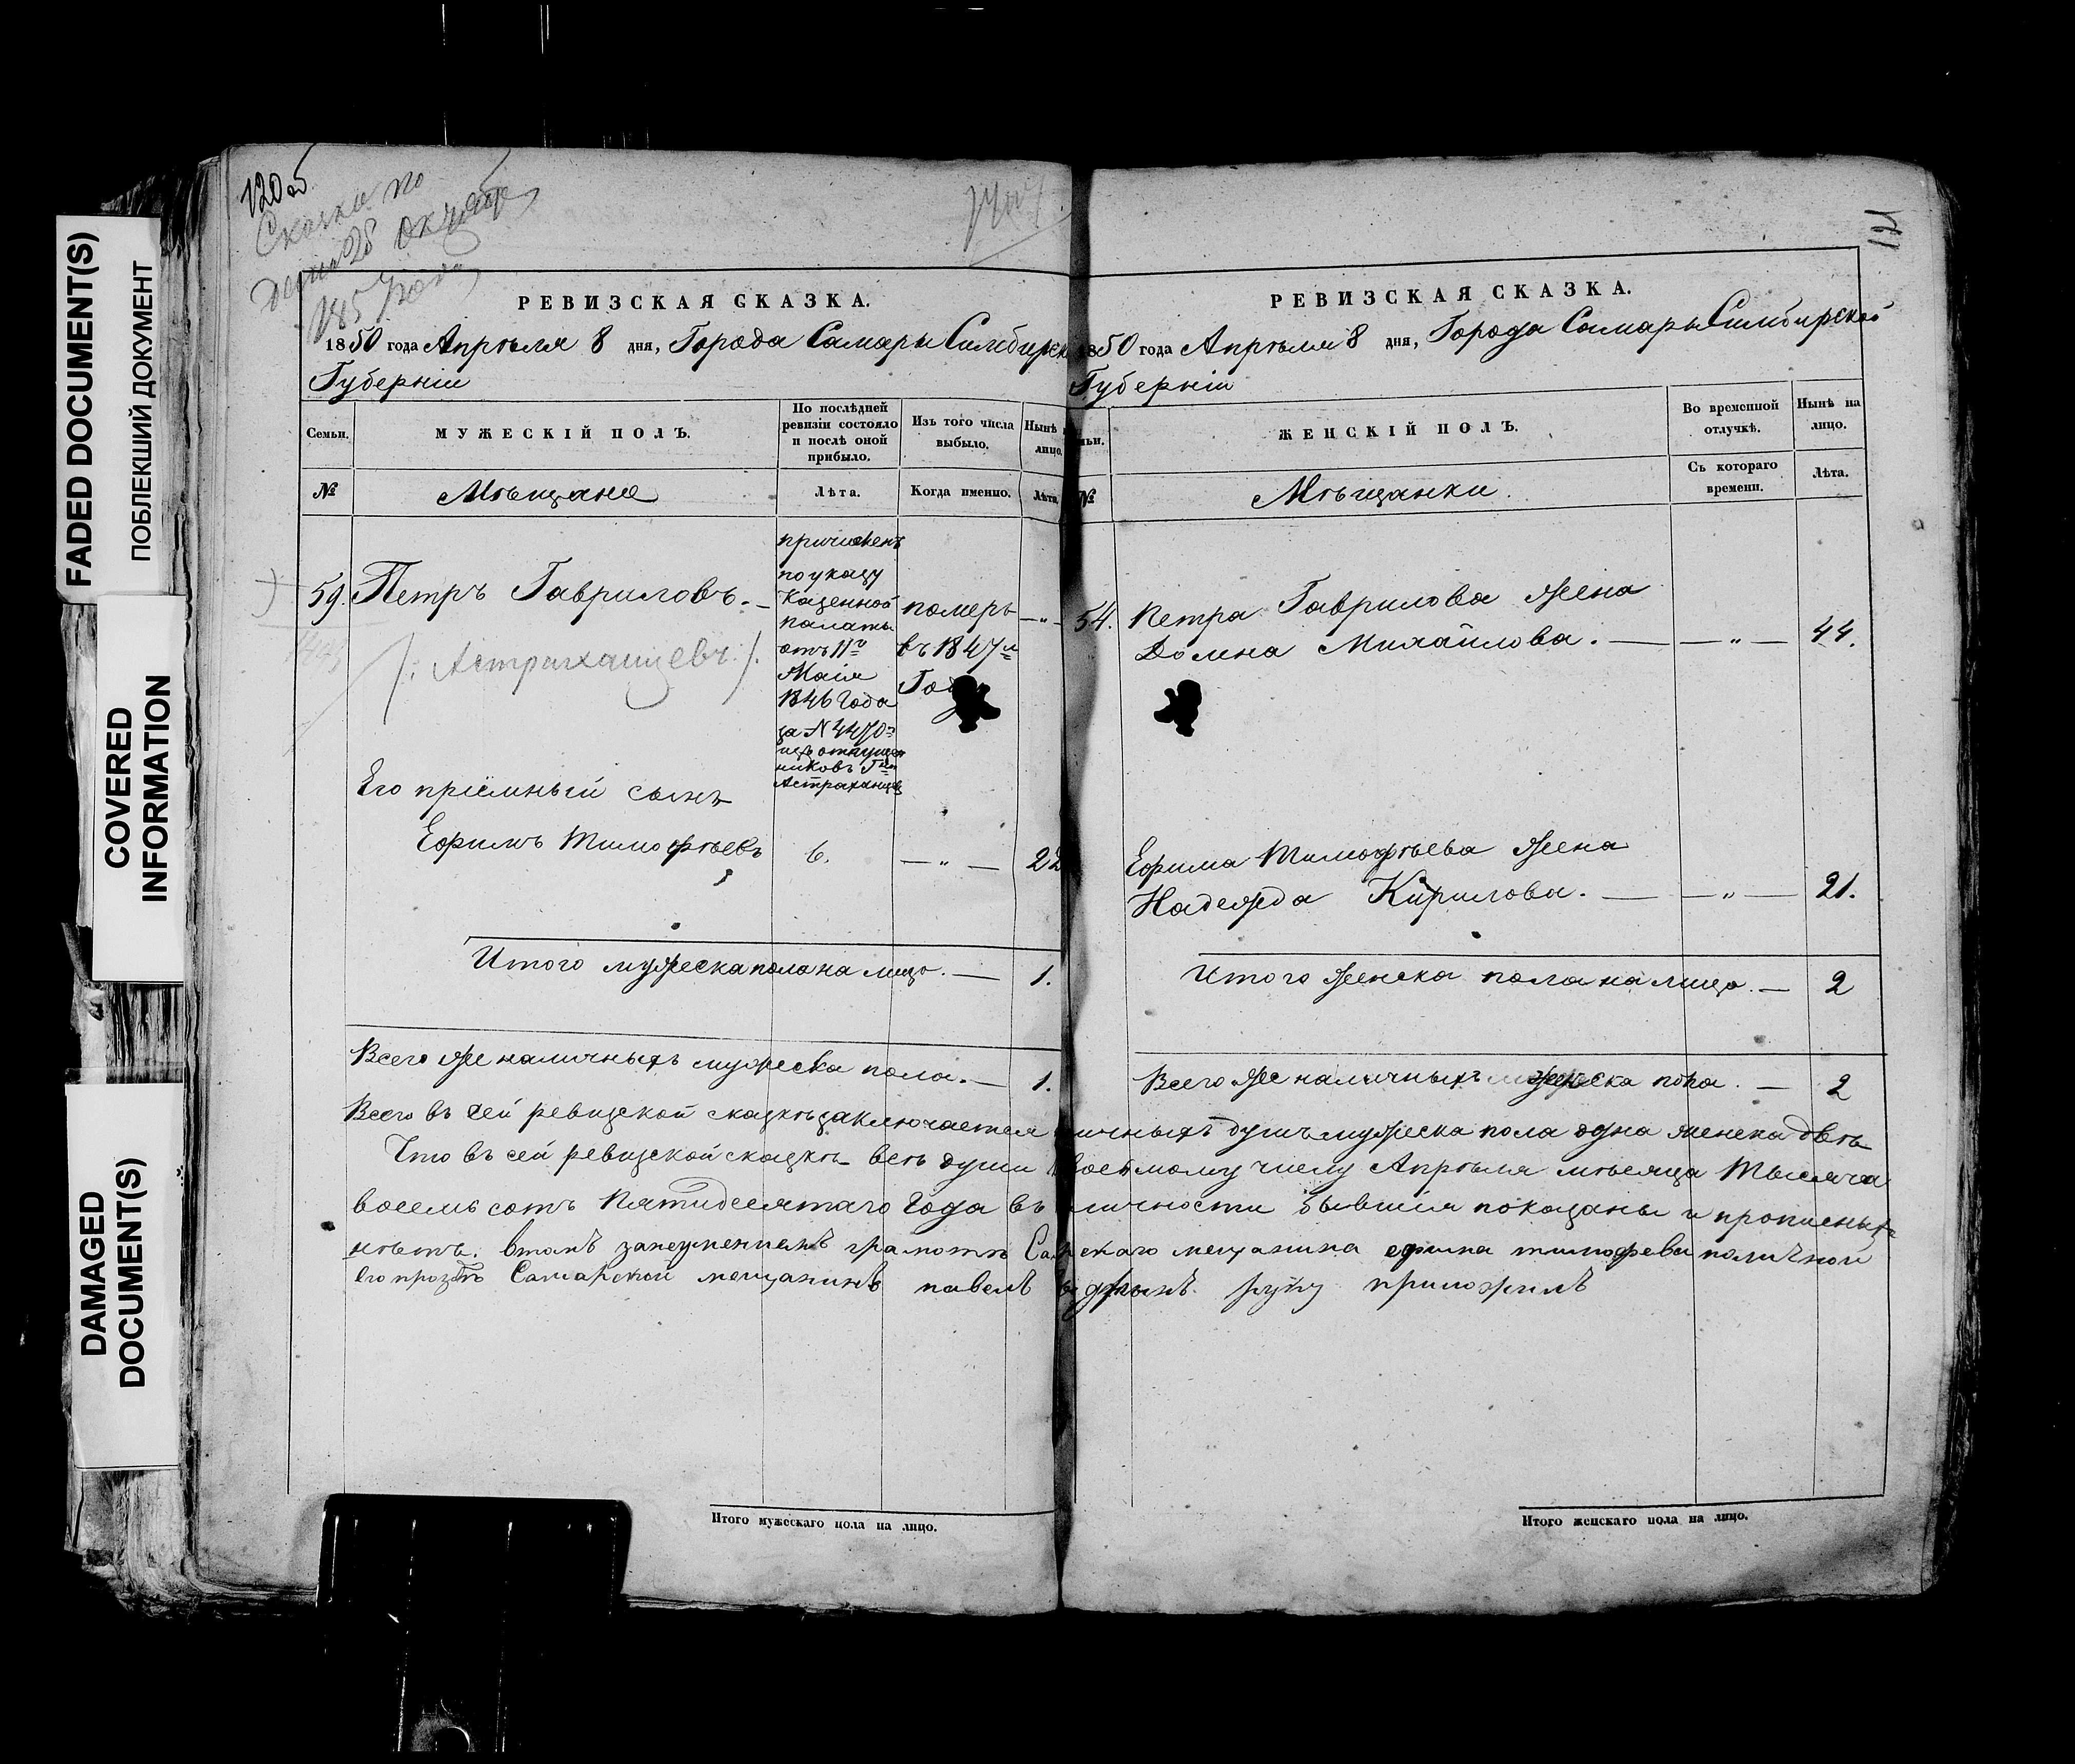 FADED DOCUMENT(S)
ПОБЛЕКШИЙ ДОКУМЕНТ
COVERED
INFORMATION
DAMAGED
DOCUMENT(S)
120 об
Сказка по
дана 28 октября
185 года
РЕВИЗСКАЯ СКАЗКА.
1850 года Апрѣля 8 дня, Города Самары Симбирск
Губерніи
Семьи.
МУЖЕСКІЙ ПОЛЪ.
По послѣдней
ревизіи состояло
и послѣ оной
прибыло.
Изъ того числа
выбыло.
Нынѣ
лицо.
№
Мѣщане
Лѣта.
Когда именно.
Лѣта.
59. Петръ Гавриловъ. —
/: Астраханцевъ :/.
причисленъ
по указу
Казенной
палаты
отъ 11го
Маія
1846 года
за № 4470
изъ отпущен
никовъ Гна
Астраханцев
померъ
въ 1847м
Году
— " —
Его пріёмный сынъ
Ефимъ Тимофѣевъ
6.
— " —
22
Итого мужеска пола на лицо. — 1.
Всего же наличныхъ мужеска пола. — 1.
121
РЕВИЗСКАЯ СКАЗКА.
1850 года Апрѣля 8 дня, Города Самары Симбирской
Губерніи
мьи.
ЖЕНСКІЙ ПОЛЪ.
Во временной
отлучкѣ.
Нынѣ на
лицо.
№
Мѣщанки.
Съ котораго
времени.
Лѣта.
54. Петра Гаврилова жена
Домна Михайлова. — — " — 44.
Ефима Тимофѣева жена
Надежда Кирилова. — — " — 21.
Итого женска пола на лицо. — 2
Всего же наличныхъ женска пола. — 2
Всего въ сей ревизской сказкѣ заключается личныхъ душъ мужеска пола одна женска двѣ
Что въ сей ревизской сказкѣ всѣ души восьмому числу Апрѣля мѣсяца Тысяча
восемь сотъ Пятидесятаго Года въ личности бывшія показаны и прописныхъ
нѣтъ. втомъ занеуменіемъ грамотѣ Самрскаго мещанина ефима тимофева поличной
его прозбѣ Самарской мещанинъ павелъ руку приложилъ
Итого мужескаго пола на лицо.
Итого женскаго пола на лицо.